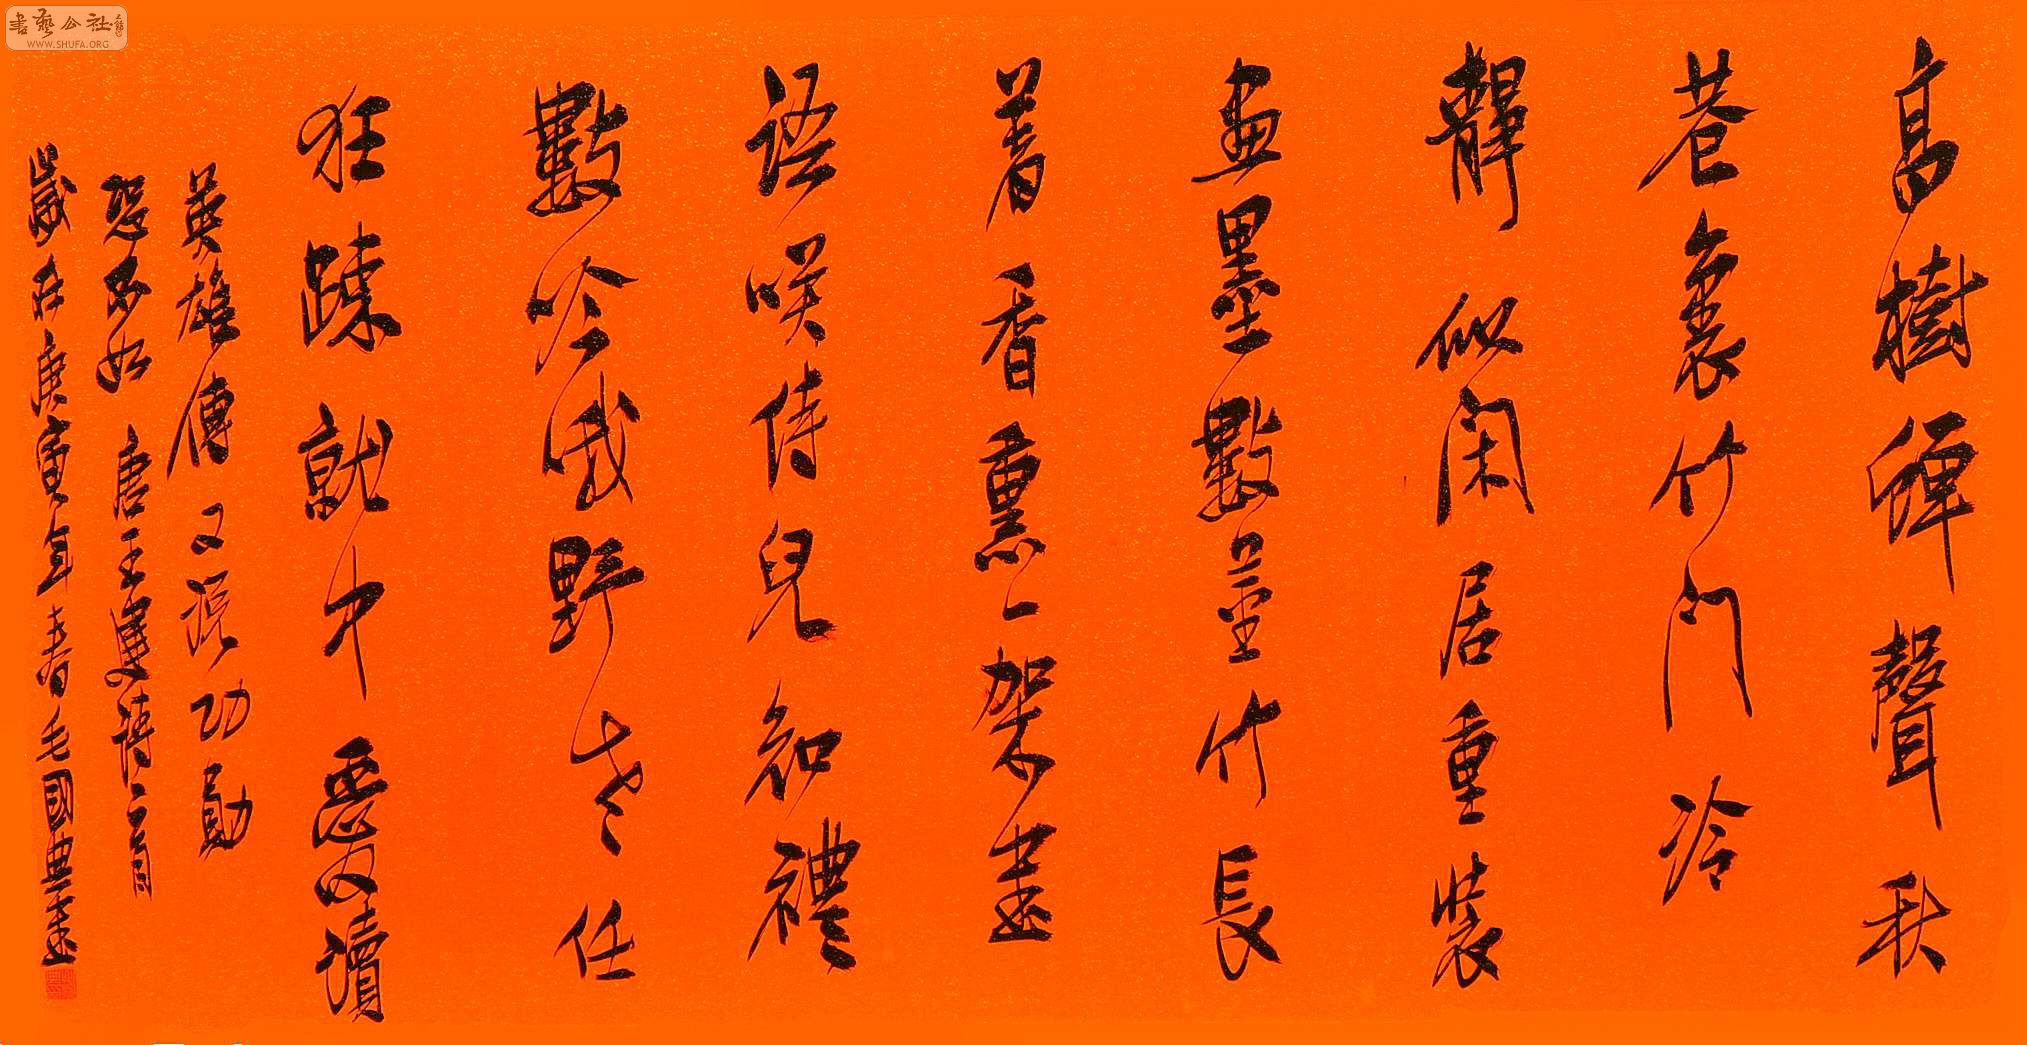 高樹蟬聲秋
巷裏竹門冷
靜似閑居重裝
畫墨數莖竹長
著香熏一架書
語笑侍兒知禮
數吟哦野老任
狂疎就中愛讀
英雄傳又功勳
恐不如 唐王建詩一首
歲在庚寅年春毛國典書
書藝公社
WWW.SHUFA.ORG